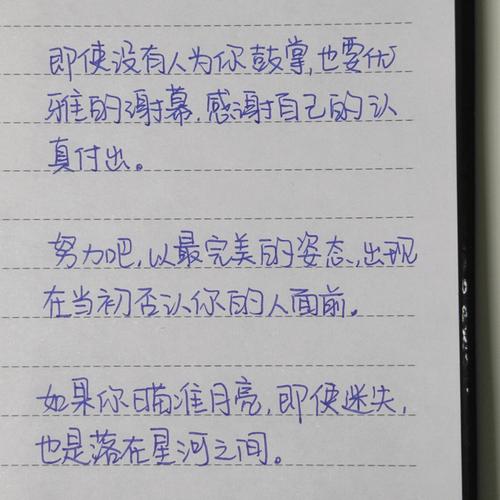 即使没有人为你鼓掌,也要优
雅的谢幕,感谢自己的认
真付出。
努力吧,以最完美的姿态,出现
在当初否认你的人面前。
如果你瞄准月亮,即使迷失,
也是落在星河之间。